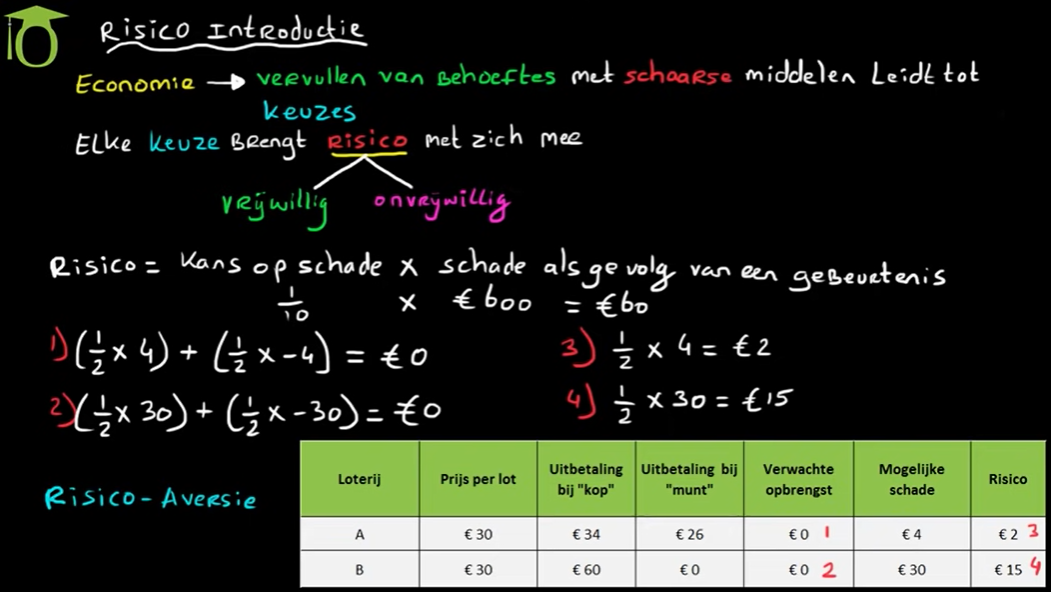 Risico Introductie
Economie → vervullen van Behoeftes met schaarse middelen Leidt tot
keuzes
Elke keuze Brengt Risico met zich mee
vrijwillig onvrijwillig
Risico = Kans op schade x schade als gevolg van een gebeurtenis
1/10 x € 600 = € 60
1) (1/2 x 4) + (1/2 x -4) = € 0
3) 1/2 x 4 = € 2
2) (1/2 x 30) + (1/2 x -30) = € 0
4) 1/2 x 30 = € 15
Risico - Aversie
Loterij Prijs per lot Uitbetaling bij "kop" Uitbetaling bij "munt" Verwachte opbrengst Mogelijke schade Risico
A € 30 € 34 € 26 € 0 1 € 4 € 2 3
B € 30 € 60 € 0 € 0 2 € 30 € 15 4